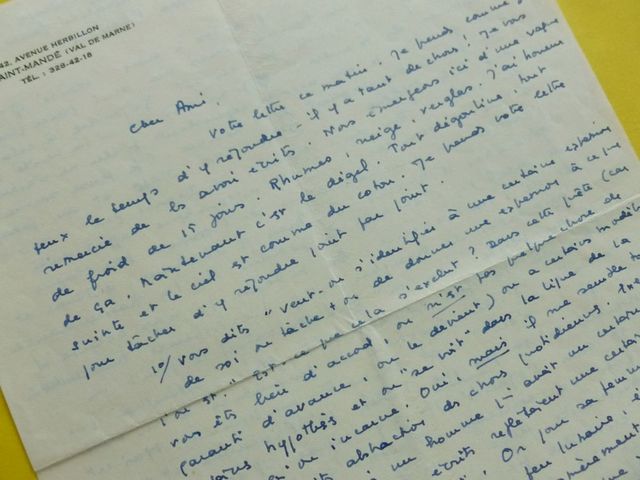 42, AVENUE HERBILLON
SAINT-MANDÉ (VAL DE MARNE)
TÉL : 328-42-18
Cher Ami,
Votre lettre ce matin. Je prends comme
peux le temps d'y répondre - il y a tant de choses ! Je vous
remercie de les avoir écrits. Nous émergeons ici d'une vague
de froid de 15 jours. Rhumes, neige, verglas. J'ai horreur
de ça. Maintenant c'est le dégel. Tout dégouline, tout
suinte et le ciel est comme du coton. Je prends votre lettre
pour tâcher d'y répondre point par point.
1°/ Vous dits "veut-on s'identifier à une certaine
de soi ou tâche-t-on de donner une à ce que
l'on est". Est-ce que cela s'exclut ? Dans cette quête (car
vous êtes bien d'accord, on n'est pas quelque chose de
garanti d'avance, on le devient) on a certains
dans la ligne de la
et on "se voit"
on incarne. Oui, mais il me semble
abstraction des choses quotidiennes.
un homme avait un certain
écrits reflétaient une certaine
Or pour sa femme
peu lunaire,